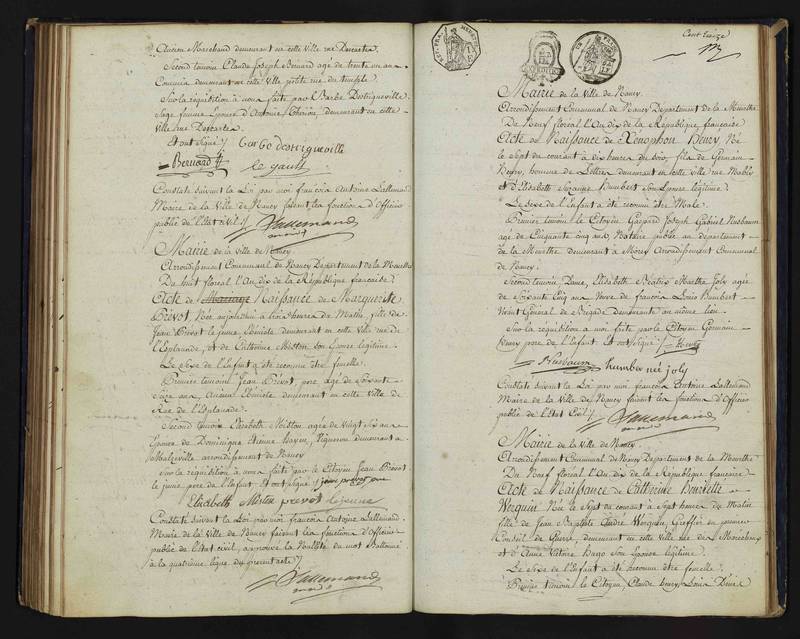 Ancien Marchand demeurant en cette Ville rue Descartes.
Second temoin Claude Joseph Bernard agé de trente un ans
Commis demeurant en cette Ville petite rue du temple
Sur la réquisition à nous faite par Barbe Destrigueville
Sage femme Epouse d'Antoine demeurant en cette
ville rue Descartes
Et ont signé /. Barbe destrigueville
Bernard
Constaté suivant la Loi par moi françois Antoine Lallemand
Maire de la Ville de Nancy faisant les fonction d'Officier
public de l'état Civil /. Lallemand
Mairie de la Ville de Nancy
Arrondissement Communal de Nancy Departement de la Meurthe
Du huit floréal l'An dix de la République française
Acte de Mariage Naissance de Marguerite
Prévot, Née aujourd'hui à trois heures du Matin, fille de
Jean Prévot le jeune Ebéniste demeurant en cette Ville rue de
l'Esplanade, et de Catherine Miston son Epouse légitime.
Le Sexe de l'Enfant a été reconnu être femelle.
Premier temoin Jean Prévot, pere agé de Soixante
ans, Ancien Ebéniste demeurant en cette Ville de
Rue de l'Esplanade.
Second temoin Elisabeth Miston agée de Vingt Six ans
Epouse de Dominique Etienne Vigneron demeurant à
Malzéville arrondissement de Nancy
Sur la réquisition à nous faite par le Citoyen Jean Prévot
le jeune pere de l'enfant. Et ont signé / jean prevot pere
Elizabeth Miston prevot lejeune
Constaté suivant la Loi par moi françois Antoine Lallemand.
Maire de la Ville de Nancy faisant les fonction d'Officier
public de l'Etat civil, approuvé la Nullité du mot Battonné
à la quatrieme ligne du present acte /.
Lallemand
Cent treize
Mairie de la Ville de Nancy.
Arrondissement Communal de Nancy Departement de la Meurthe
Du Neuf floréal l'An dix de la République française
Acte de Naissance de Xénophon Henry, Né
le Sept du courant à dix heures du soir, fils de Germain
Henry, homme de Lettres demeurant en cette ville rue Mably
et d'Elisabeth Suzanne Humbert son Epouse légitime.
Le Sexe de l'Enfant a été reconnu être Male.
Premier temoin le Citoyen Gaspard Joseph Gabriel Nusbaum
agé de Cinquante cinq ans, Notaire public au departement
de la Meurthe demeurant à Arrondissement Communal
de Nancy.
Second temoin Dame, Elisabeth Béatrix Marthe Joly agée
de Soixante Cinq ans Veuve de francois Louis Humbert
Vivant Général de Brigade demeurante au même lieu.
Sur la réquisition à moi faite par le Citoyen Germain
Henry pere de l'Enfant Et ont signé /. Henry
Nusbaum humber née joly
Constaté suivant la Loi par moi francois Antoine Lallemand
Maire de la Ville de Nancy faisant les fonction d'Officier
public de l'Etat Civil /. Lallemand
Mairie de la Ville de Nancy.
Arrondissement Communal de Nancy Departement de la Meurthe
Du Neuf floréal l'An dix de la République française
Acte de Naissance de Catherine Henriette
Werquin Née le Sept du courant à Sept heures du Matin
fille de Jean Baptiste André Werquin, Greffier au premier
Conseil de Guerre, demeurant en cette Ville rue des Marechaux
et d'Anne Victoire Hugo son Epouse légitime.
Le Sexe de l'Enfant a été reconnu être femelle.
Premier temoin le Citoyen, Claude Henry Louis